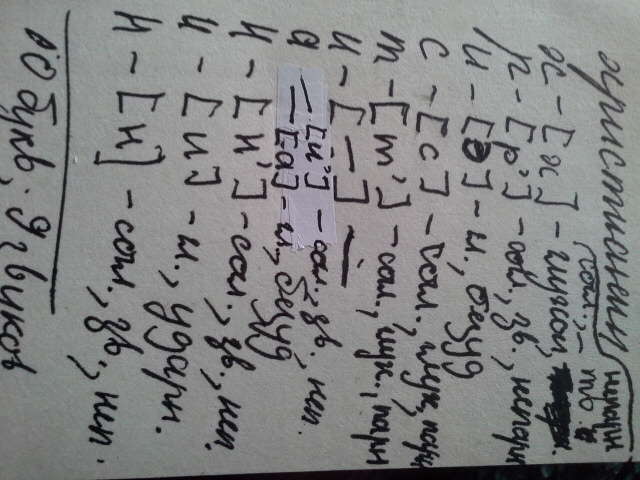 христианин
сол., непарн
х – [х] – глухой, тв.
р – [р'] – сол., зв., непарн
и – [э] – гл., безуд
с – [с] – сол., глух, парн
т – [т'] – сол., глух., парн
и – [–] –
а – [и'] – сол., зв., неп.
– [а] – гл., безуд
н – [н'] – сол., зв., неп.
и – [и] – гл., ударн.
н – [н] – согл., зв., неп.
10 букв; 9 звуков